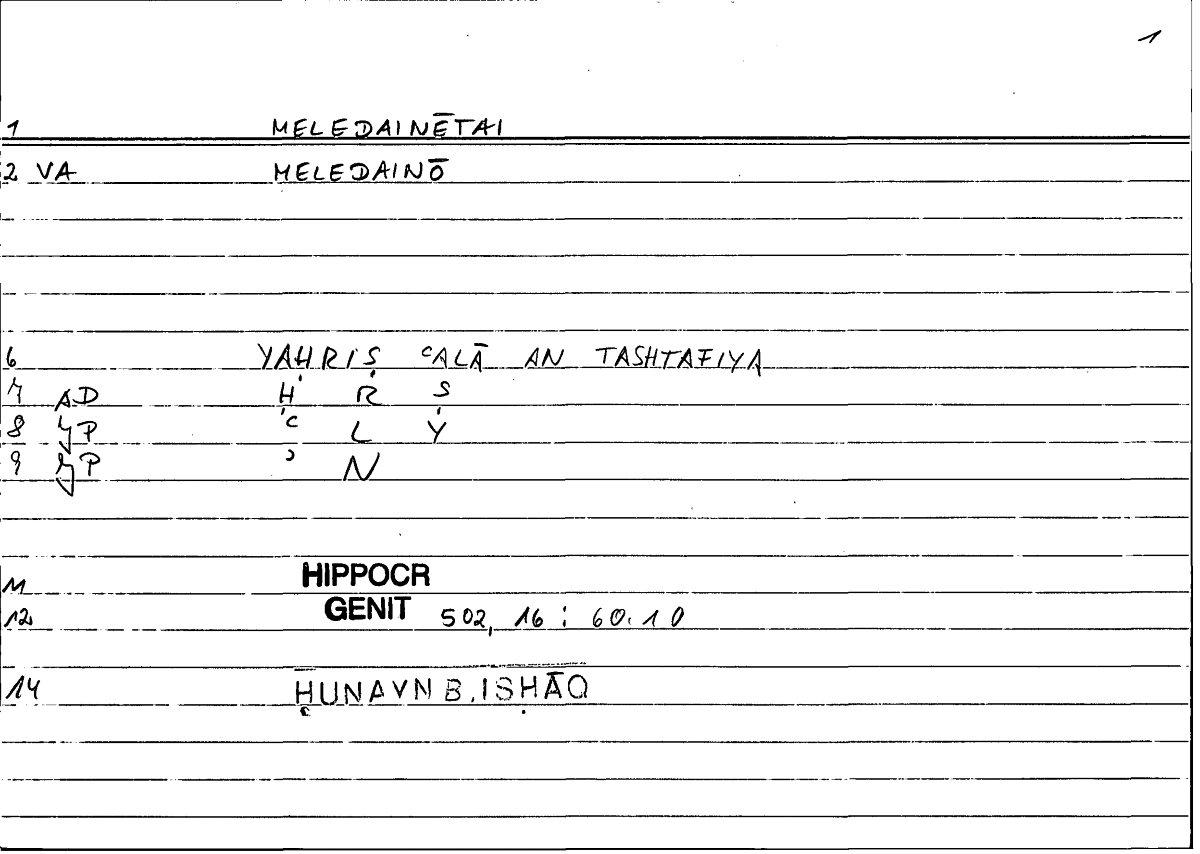 1
1 MELEDAINĒTAI
2 VA MELEDAINŌ
6 YAḤRIṢ ʿALĀ AN TASHTAFIYA
7 AD Ḥ R Ṣ
8 YP ʿ L Y
9 YP ʾ N
11 HIPPOCR
12 GENIT 502, 16 : 60.10
14 ḤUNAYN B. ISḤĀQ